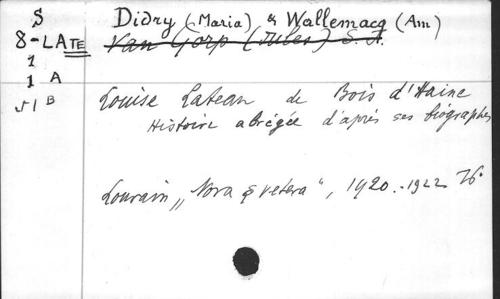 S
8-LATE
1
1 A
√1 B
Didry (Maria) & Wallemacq (Am)
Van Gorp (Jules) S.J.
Louise Lateau de Bois d'Haine
Histoire abrégée d'après ses biographes
Louvain „Nova & vetera", 1920.-1922